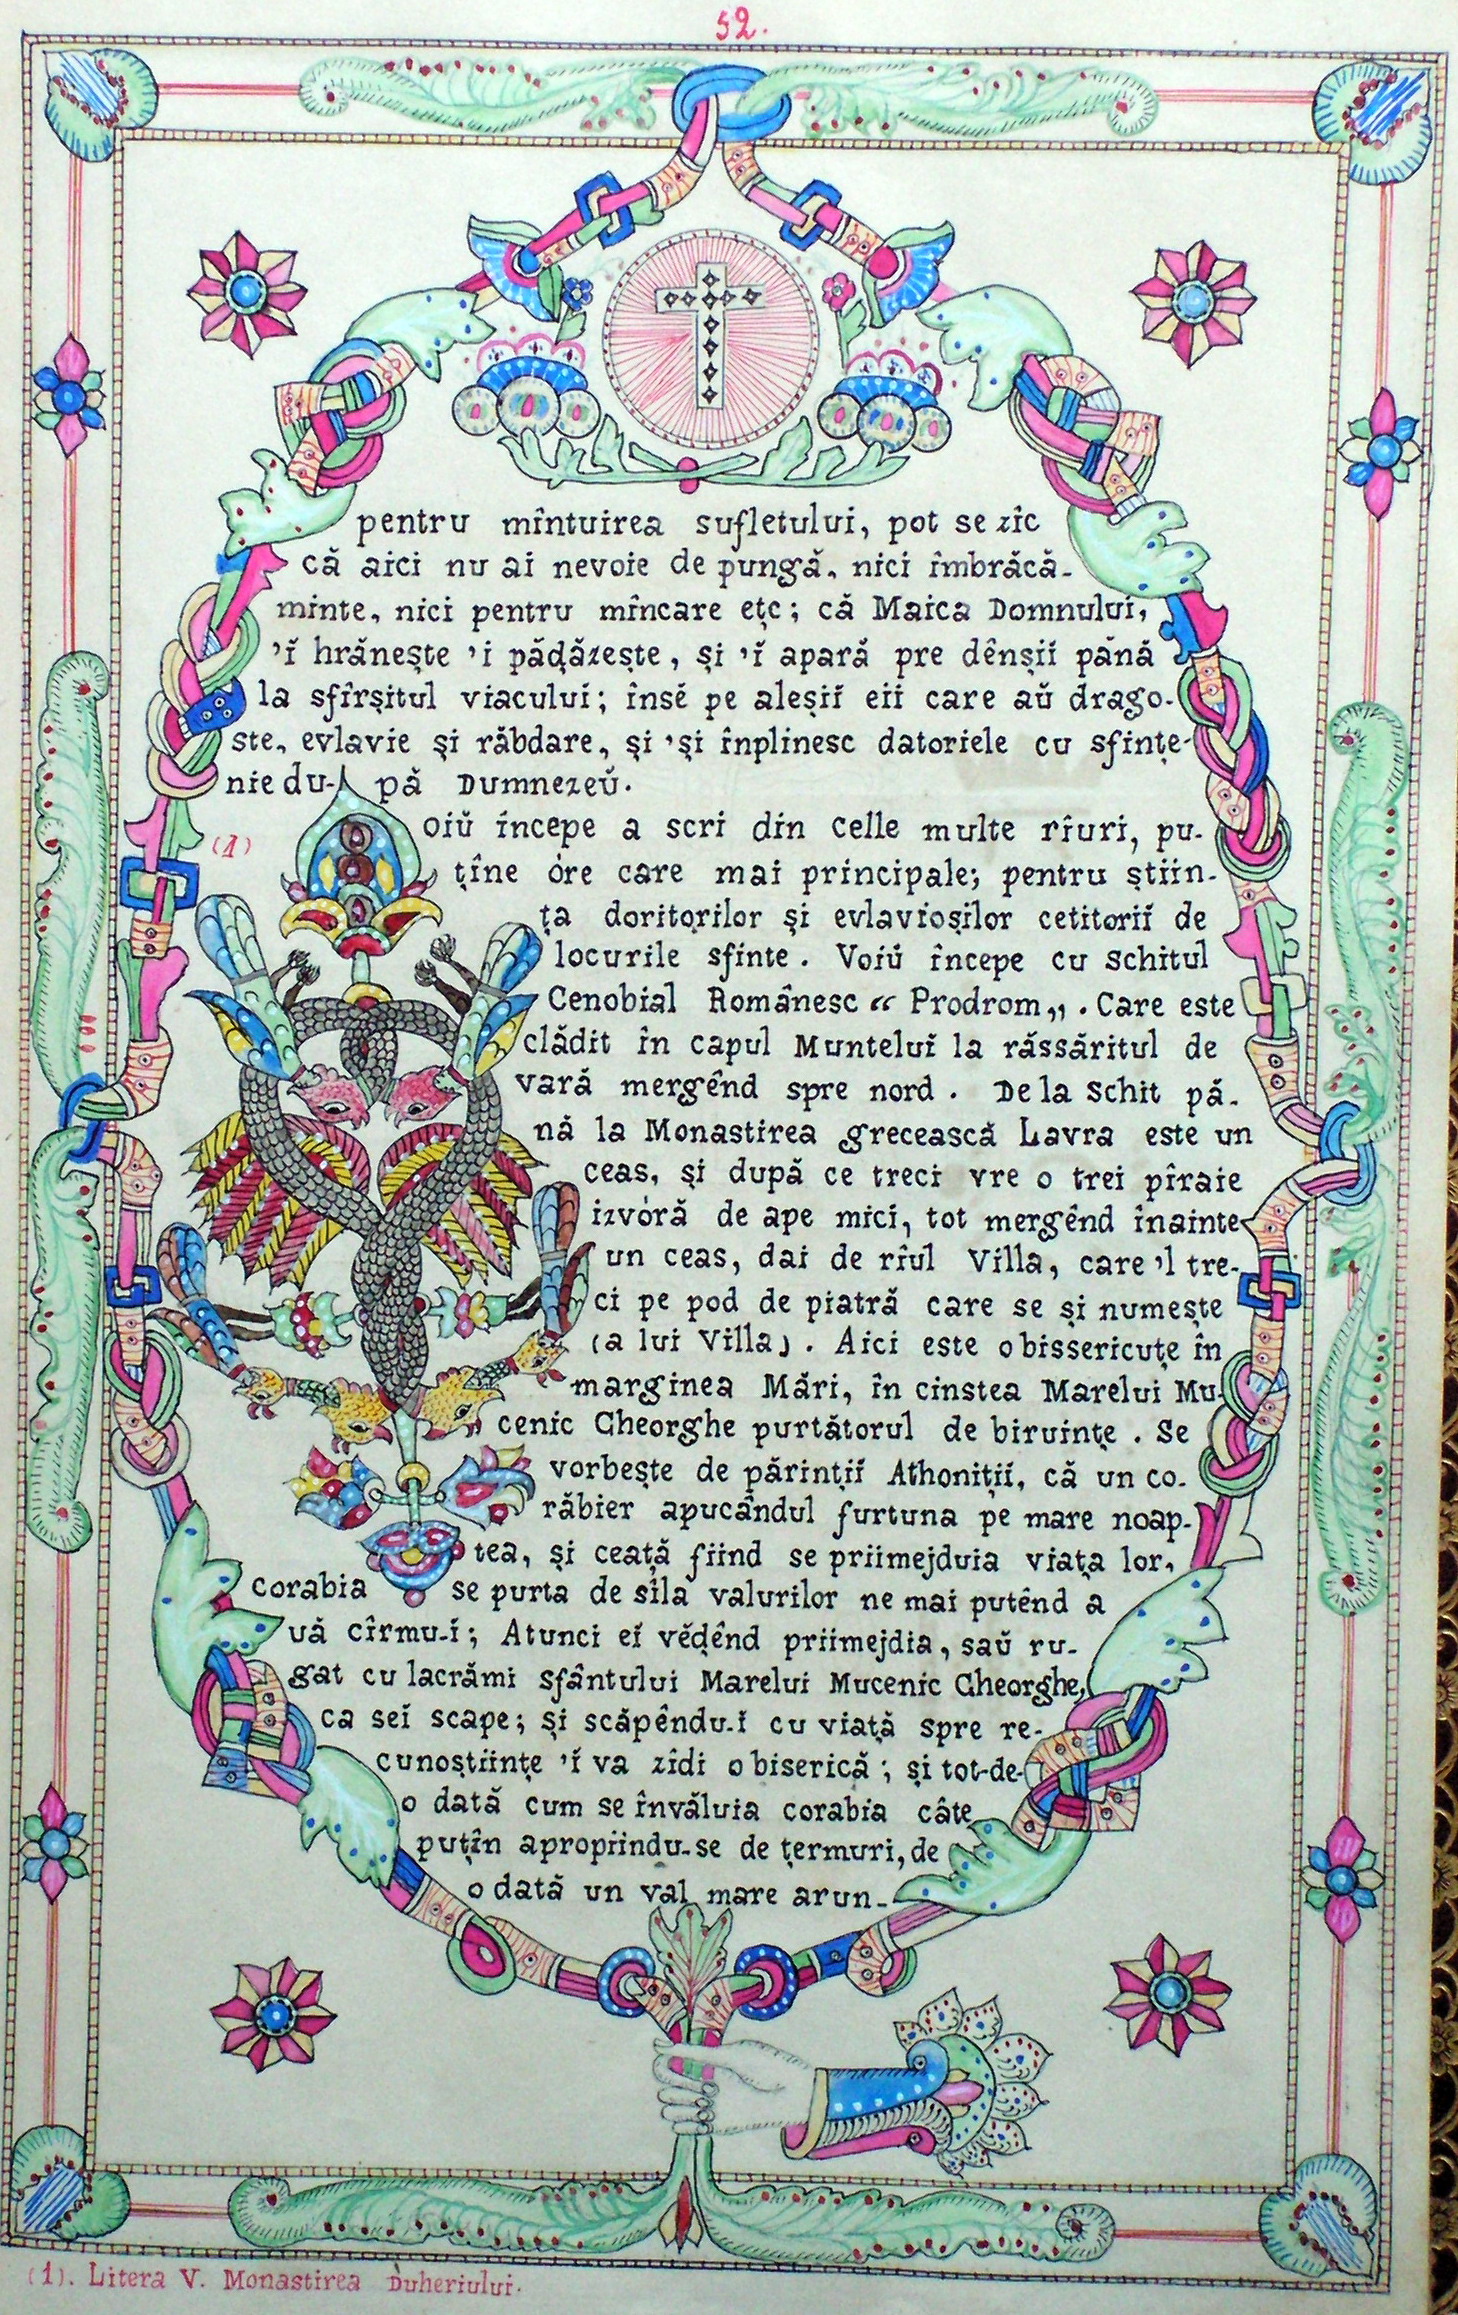 52.
pentru mîntuirea sufletului, pot se zîc
că aici nu ai nevoie de pungă, nici îmbrăcă-
minte, nici pentru mîncare etc; că Maica Domnului,
'ĭ hrănește 'i păḑăzește, și 'ĭ apară pre dênșiĭ pănă
la sfîrșitul viaculuĭ; însĕ pe aleșiĭ eiĭ care aŭ drago-
ste, evlavie și răbdare, și 'și înplinesc datoriele cu sfințe-
nie du- pă Dumnezeŭ.
oiŭ începe a scri din celle multe rîuri, pu-
(1)
ține óre care mai principale; pentru știin-
ța doritorilor și evlavioșilor cetitoriĭ de
locurile sfinte. Voiŭ începe cu Schitul
Cenobial Românesc “ Prodrom „. Care este
clădit în capul Munteluĭ la răssăritul de
vară mergênd spre nord. De la Schit pă-
nă la Monastirea grecească Lavra este un
ceas, și după ce treci vre o trei pîraie
izvóră de ape mici, tot mergênd înainte
un ceas, dai de rîul Villa, care 'l tre-
ci pe pod de piatră care se și numește
(a lui Villa). Aici este o bissericuțe în
marginea Mări, în cinstea Marelui Mu-
cenic Gheorghe purtătorul de biruințe. Se
vorbește de părințiĭ Athonițiĭ, că un co-
răbier apucândul furtuna pe mare noap-
tea, și ceață fiind se priimejduia viața lor,
corabia se purta de sila valurilor ne mai putênd a
uă cîrmu-ĭ; Atunci eĭ vĕḑênd priimejdia, saŭ ru-
gat cu lacrămi Sfântului Marelui Mucenic Gheorghe,
ca seĭ scape; și scăpêndu-ĭ cu viață spre re-
cunoștiințe 'ĭ va zîdi o biserică; și tot-de-
o dată cum se învăluia corabia câte
puțîn apropiindu-se de țermuri, de
o dată un val mare arun-
(1). Litera V. Monastirea Duheriului.